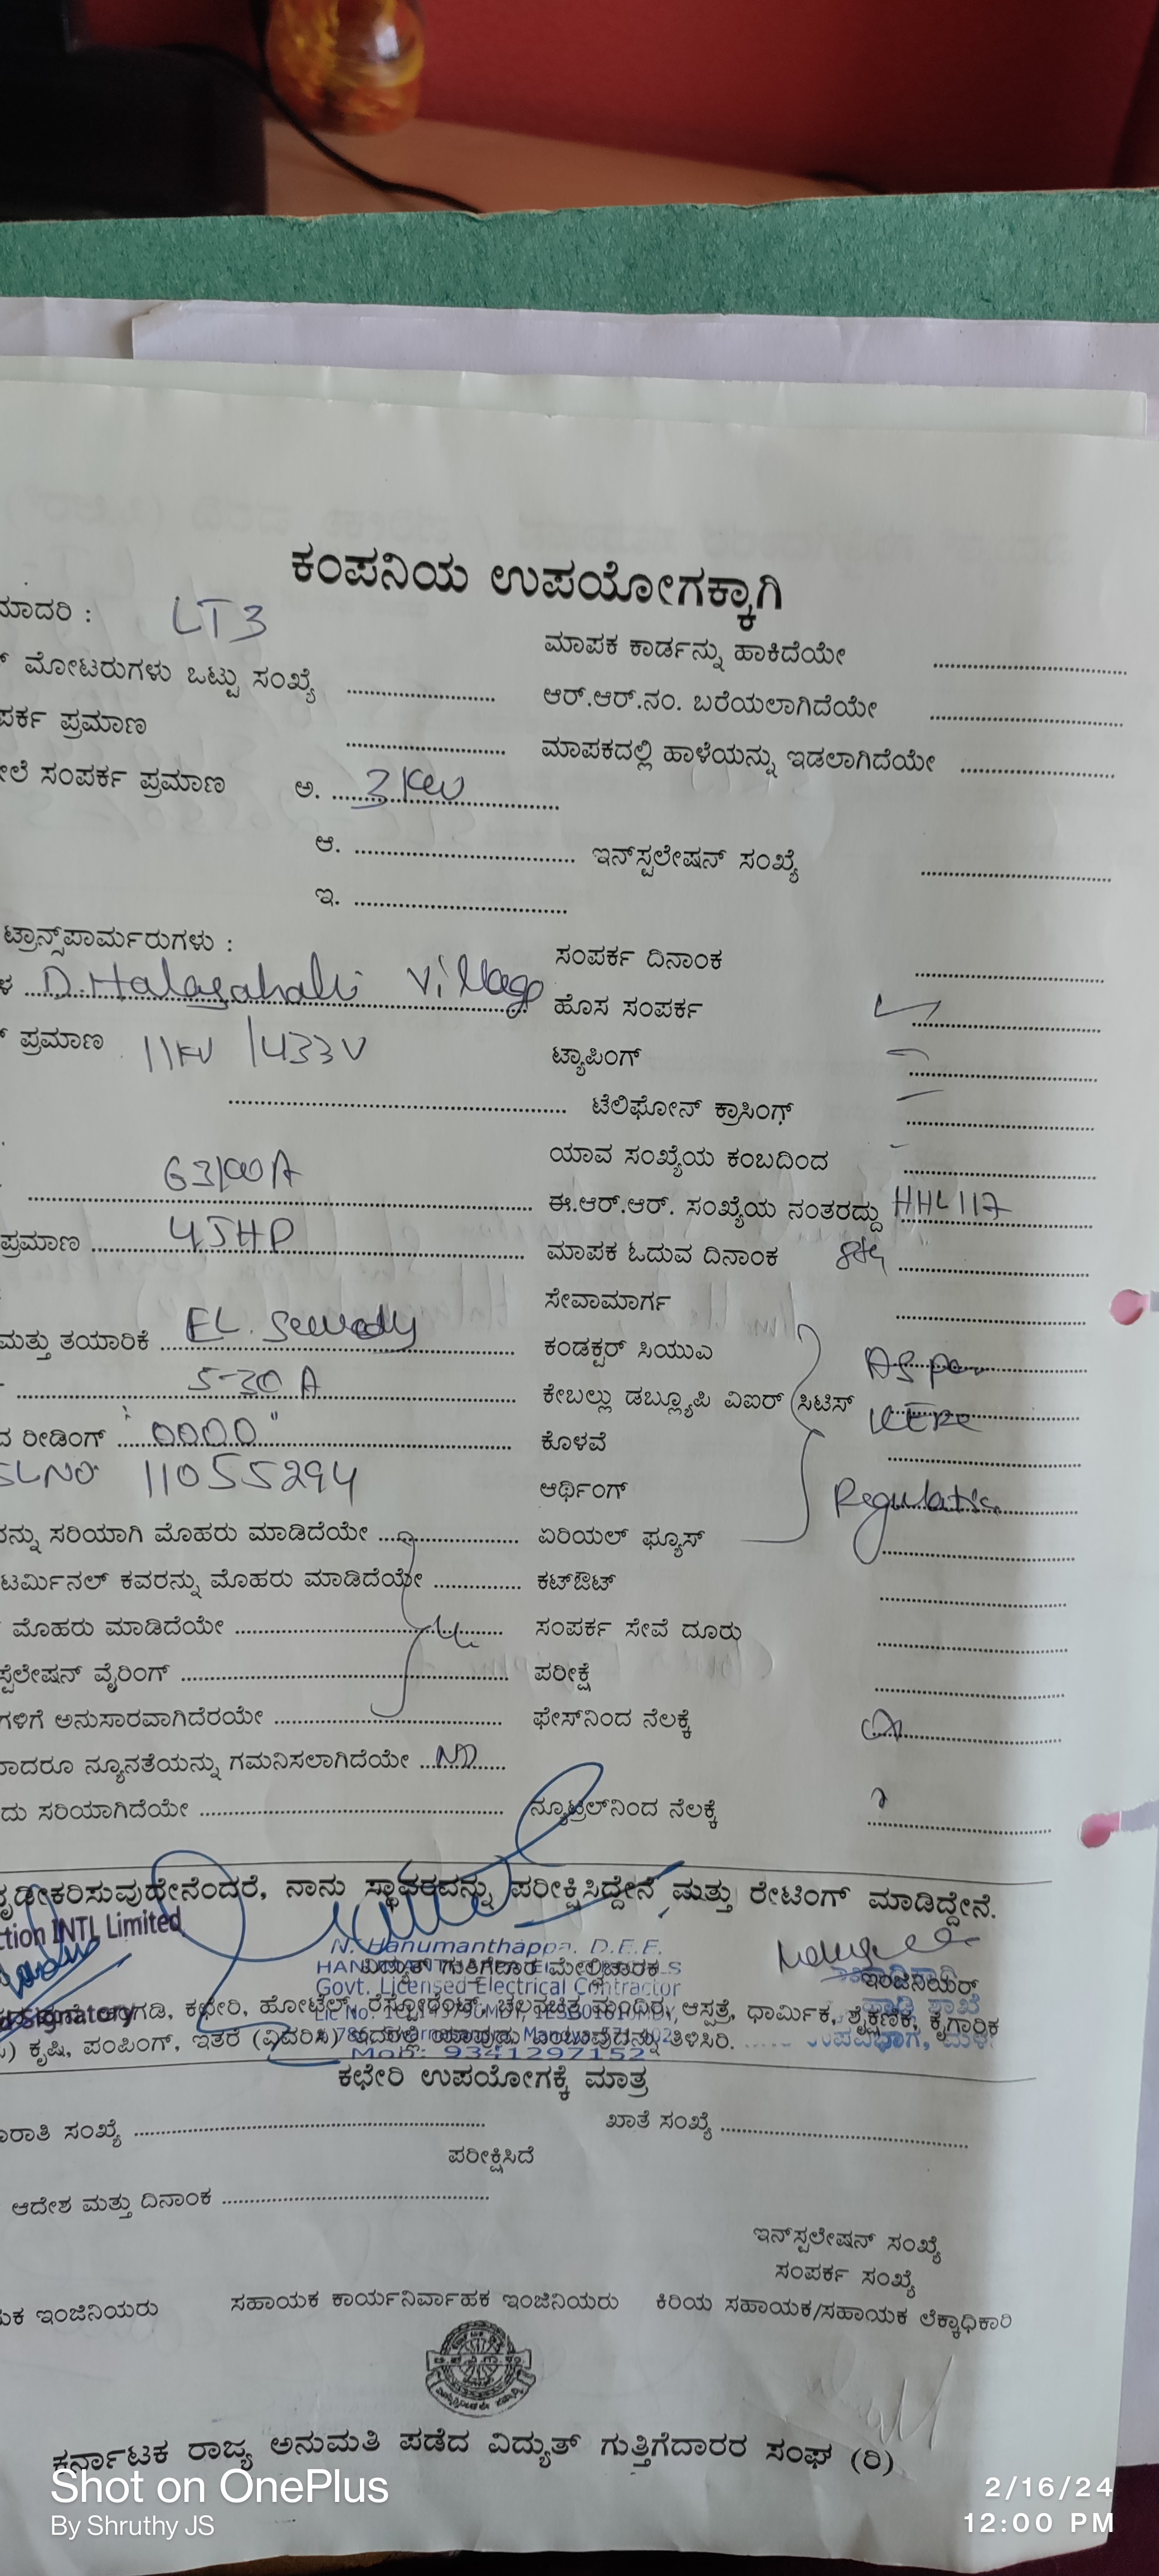 ಕಂಪನಿಯ ಉಪಯೋಗಕ್ಕಾಗಿ
ಮಾದರಿ : LT3
ಮಾಪಕ ಕಾರ್ಡನ್ನು ಹಾಕಿದೆಯೇ
ಮೋಟರುಗಳು ಒಟ್ಟು ಸಂಖ್ಯೆ
ಆರ್.ಆರ್.ನಂ. ಬರೆಯಲಾಗಿದೆಯೇ
ಪರ್ಕ ಪ್ರಮಾಣ
ಮಾಪಕದಲ್ಲಿ ಹಾಳೆಯನ್ನು ಇಡಲಾಗಿದೆಯೇ
ಲೆ ಸಂಪರ್ಕ ಪ್ರಮಾಣ ಅ. 3 KW
ಆ.
ಇನ್‌ಸ್ಟಲೇಷನ್ ಸಂಖ್ಯೆ
ಇ.
ಟ್ರಾನ್ಸ್‌ಪಾರ್ಮರುಗಳು :
ಸಂಪರ್ಕ ದಿನಾಂಕ
ಳ D. Halagahalli Village
ಹೊಸ ಸಂಪರ್ಕ
ಪ್ರಮಾಣ 11KV / 433V
ಟ್ಯಾಪಿಂಗ್
ಟೆಲಿಫೋನ್ ಕ್ರಾಸಿಂಗ್
ಯಾವ ಸಂಖ್ಯೆಯ ಕಂಬದಿಂದ
63/100A
ಈ.ಆರ್.ಆರ್. ಸಂಖ್ಯೆಯ ನಂತರದ್ದು HHL 117
ಪ್ರಮಾಣ 45HP
ಮಾಪಕ ಓದುವ ದಿನಾಂಕ 8th
ಸೇವಾಮಾರ್ಗ
ಮತ್ತು ತಯಾರಿಕೆ EL. Sewedy
ಕಂಡಕ್ಟರ್ ಸಿಯುಎ As per
5-30 A
ಕೇಬಲ್ಲು ಡಬ್ಲ್ಯೂಪಿ ವಿಐರ್ ಸಿಟಿಸ್ KERC
ದ ರೀಡಿಂಗ್ "0000"
ಕೊಳವೆ
SLNO 11055294
ಆರ್ಥಿಂಗ್ Regulation
ವನ್ನು ಸರಿಯಾಗಿ ಮೊಹರು ಮಾಡಿದೆಯೇ
ಏರಿಯಲ್ ಫ್ಯೂಸ್
ಟರ್ಮಿನಲ್ ಕವರನ್ನು ಮೊಹರು ಮಾಡಿದೆಯೇ
ಕಟ್‌ಔಟ್
ಮೊಹರು ಮಾಡಿದೆಯೇ
ಸಂಪರ್ಕ ಸೇವೆ ದೂರು
ಸ್ಟೆಲೇಷನ್ ವೈರಿಂಗ್
ಪರೀಕ್ಷೆ
ಗಳಿಗೆ ಅನುಸಾರವಾಗಿದೆರಯೇ
ಫೇಸ್‌ನಿಂದ ನೆಲಕ್ಕೆ
ವಾದರೂ ನ್ಯೂನತೆಯನ್ನು ಗಮನಿಸಲಾಗಿದೆಯೇ NO
ದು ಸರಿಯಾಗಿದೆಯೇ
ನ್ಯೂಟ್ರಲ್‌ನಿಂದ ನೆಲಕ್ಕೆ
ದೃಢೀಕರಿಸುವುದೇನೆಂದರೆ, ನಾನು ಸ್ಥಾವರವನ್ನು ಪರೀಕ್ಷಿಸಿದ್ದೇನೆ ಮತ್ತು ರೇಟಿಂಗ್ ಮಾಡಿದ್ದೇನೆ.
ction INTL Limited
N. Hanumanthappa, D.E.E.
ವಿದ್ಯುತ್ ಗುತ್ತಿಗೆದಾರ ಮೇಲ್ವಿಚಾರಕ
ಇಂಜಿನಿಯರ್
Govt. Licensed Electrical Contractor
Signatory
ಅಂಗಡಿ, ಕಛೇರಿ, ಹೋಟೆಲ್, ರೆಸ್ಟೋರೆಂಟ್, ಚಲನಚಿತ್ರ ಮಂದಿರ, ಆಸ್ಪತ್ರೆ, ಧಾರ್ಮಿಕ, ಶೈಕ್ಷಣಿಕ, ಕೈಗಾರಿಕ
) ಕೃಷಿ, ಪಂಪಿಂಗ್, ಇತರೆ (ವಿವರಿಸಿ) ಇದರಲ್ಲಿ ಯಾವುದು ಎಂಬುವುದನ್ನು ತಿಳಿಸಿರಿ.
Mob: 9341297152
ಕಛೇರಿ ಉಪಯೋಗಕ್ಕೆ ಮಾತ್ರ
ರಾತಿ ಸಂಖ್ಯೆ
ಖಾತೆ ಸಂಖ್ಯೆ
ಪರೀಕ್ಷಿಸಿದೆ
ಆದೇಶ ಮತ್ತು ದಿನಾಂಕ
ಇನ್‌ಸ್ಟಲೇಷನ್ ಸಂಖ್ಯೆ
ಸಂಪರ್ಕ ಸಂಖ್ಯೆ
ಯಕ ಇಂಜಿನಿಯರು
ಸಹಾಯಕ ಕಾರ್ಯನಿರ್ವಾಹಕ ಇಂಜಿನಿಯರು
ಕಿರಿಯ ಸಹಾಯಕ/ಸಹಾಯಕ ಲೆಕ್ಕಾಧಿಕಾರಿ
ಕರ್ನಾಟಕ ರಾಜ್ಯ ಅನುಮತಿ ಪಡೆದ ವಿದ್ಯುತ್ ಗುತ್ತಿಗೆದಾರರ ಸಂಘ (ರಿ)
Shot on OnePlus
By Shruthy JS
2/16/24
12:00 PM